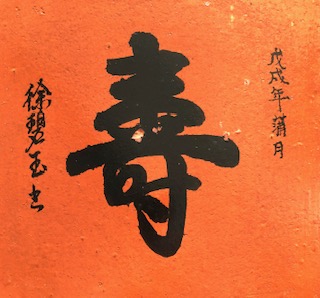 戊戌年蒲月
壽
徐碧玉書